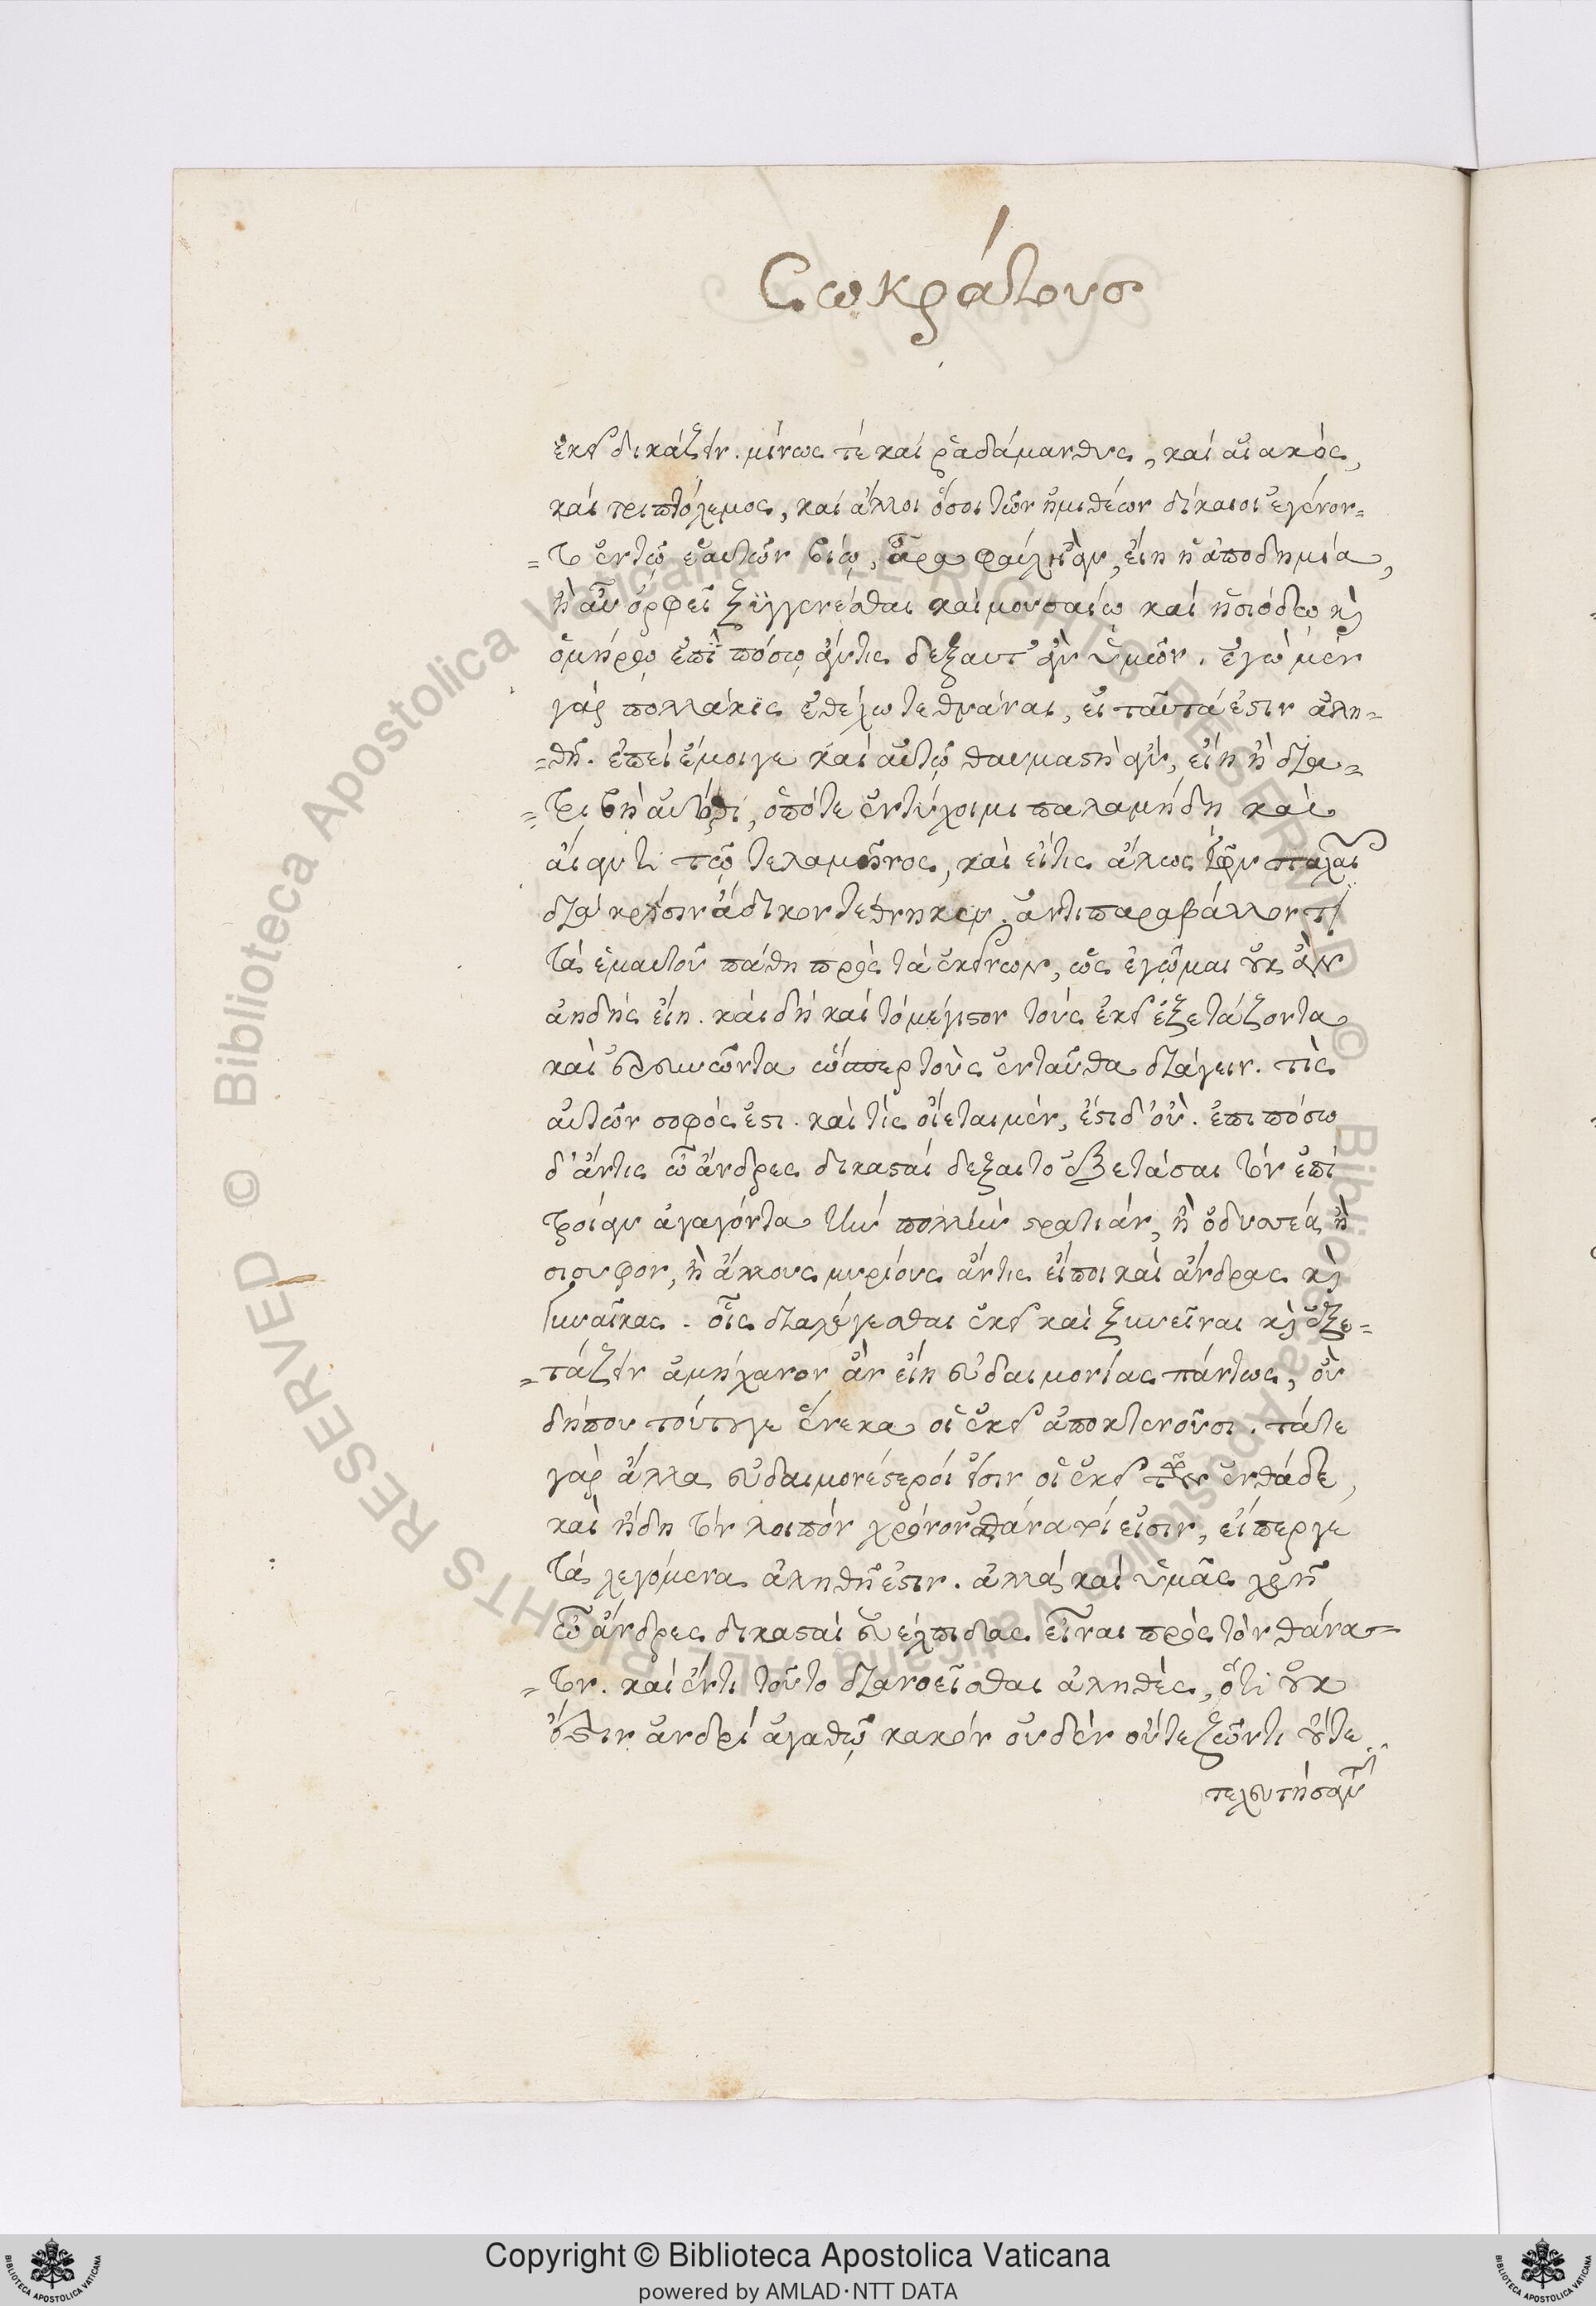 Σωκράτους
ἐκεῖ δικάζειν. μίνως τέ καί ῥαδάμανθυς, καί αἰακός,
καί τριπτόλεμος, καί ἄλλοι ὅσοι τῶν ἡμιθέων δίκαιοι ἐγένον=
=το ἐν τῷ ἑαυτῶν βίῳ, ἆρα φαύλη ἂν, εἴη ἡ ἀποδημία,
ἢ αὖ ὀρφεῖ ξυγγενέσθαι καί μουσαίῳ καί ἡσιόδῳ κὶ
ὁμήρῳ ἐπὶ πόσῳ ἄν τις δεξαιτ' ἂν ὑμῶν. ἐγώ μέν
γάρ πολλάκις ἐθέλω τεθνάναι, εἰ ταῦτά ἐστιν ἀλη=
=θῆ. ἐπεί ἔμοιγε καί αὐτῷ θαυμαστὴ ἄν, εἴη ἡ δια=
=τριβὴ αὐτόθι, ὁπότε ἐντύχοιμι παλαμήδη καὶ
αἴαντι τῷ τελαμῶνος, καὶ εἴ τις ἄλλως τῶν παλαιῶν
διὰ κρίσιν ἄδικον τέθνηκεν. ἀντιπαραβάλλοντι
τά ἐμαυτοῦ πάθη πρός τά ἐκείνων, ὡς ἐγᾦμαι οὐκ ἂν
ἀηδής εἴη. καί δή καί τό μέγιστον τούς ἐκεῖ ἐξετάζοντα
καὶ ἐρευνῶντα ὥσπερ τοὺς ἐνταῦθα διάγειν. τίς
αὐτῶν σοφός ἐστι. καί τίς οἴεται μέν, ἔστι δ' οὔ. ἐπι πόσῳ
δ' ἄν τις ὦ ἄνδρες δικασταί δεξαιτο ἐξετάσαι τόν ἐπί
τροίαν ἀγαγόντα τήν πολλήν στρατιάν, ἢ ὀδυσσέα ἢ
σισυφον, ἢ ἄλλους μυρίους ἄν τις εἴποι καί ἄνδρας κὶ
γυναῖκας. οἷς διαλέγεσθαι ἐκεῖ καί ξυνεῖναι κὶ ἐξε=
=τάζειν ἀμήχανον ἂν εἴη εὐδαιμονίας πάντως, οὐ
δήπου τούτου γε ἕνεκα οἱ ἐκεῖ ἀποκτενοῦσι. τά τε
γάρ ἄλλα εὐδαιμονέστεροί εἰσιν οἱ ἐκεῖ τῶν ἐνθάδε,
καί ἤδη τόν λοιπόν χρόνον ἀθάνατοί εἰσιν, εἴπερ γε
τά λεγόμενα ἀληθῆ ἐστιν. ἀλλά καί ὑμᾶς χρὴ
ὦ ἄνδρες δικασταί εὐέλπιδας εἶναι πρός τόν θάνα=
=τον. καί ἕν τι τοῦτο διανοεῖσθαι ἀληθές, ὅτι οὐκ
ἔστιν ἀνδρί ἀγαθῷ κακόν οὐδέν οὔτε ζῶντι οὔτε
τελευτήσαντι